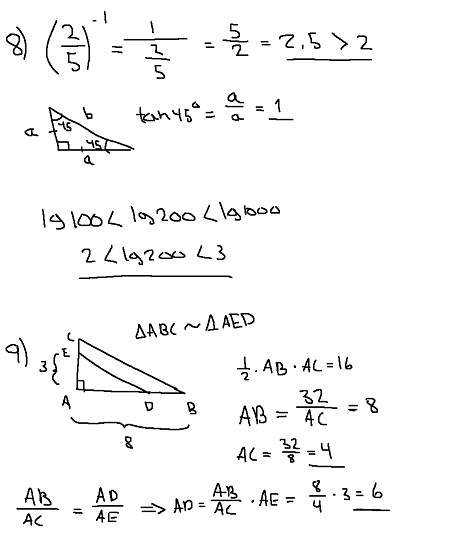 8) (2/5)^-1 = 1/(2/5) = 5/2 = 2.5 > 2
a 45 b 45 a
tan 45° = a/a = 1
lg100 < lg200 < lg1000
2 < lg200 < 3
9) 3 { C E A D B 8
ΔABC ~ ΔAED
1/2 · AB · AC = 16
AB = 32/AC = 8
AC = 32/8 = 4
AB/AC = AD/AE => AD = AB/AC · AE = 8/4 · 3 = 6